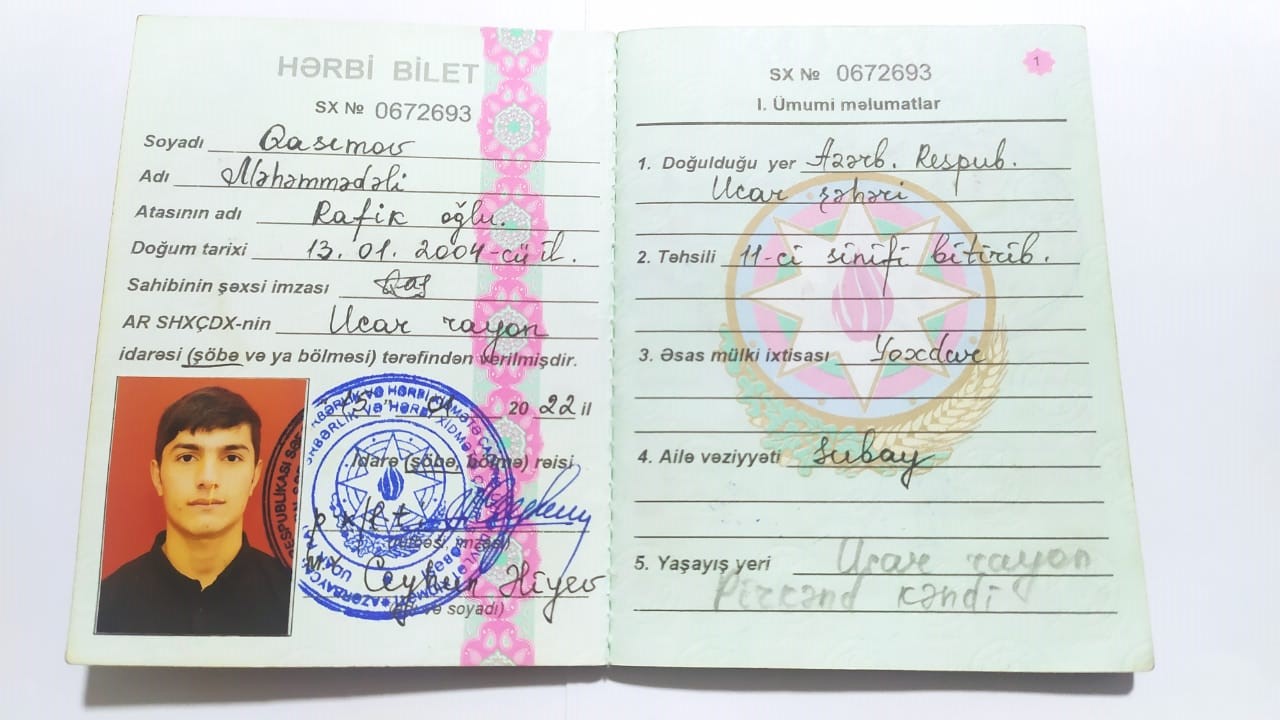 HƏRBİ BİLET
SX № 0672693
Soyadı Qasımov
Adı Məhəmmədəli
Atasının adı Rafik oğlu.
Doğum tarixi 13.01.2004-cü il.
Sahibinin şəxsi imzası
AR SHXÇDX-nin Ucar rayon
idarəsi (şöbə və ya bölməsi) tərəfindən verilmişdir.
20 22 il
idarə (şöbə, bölmə) rəisi
M.Y. Ceyhun Əliyev
(adı və soyadı)
SX № 0672693
1
I. Ümumi məlumatlar
1. Doğulduğu yer Azərb. Respub.
Ucar şəhəri
2. Təhsili 11-ci sinifi bitirib.
3. Əsas mülki ixtisası Yoxdur
4. Ailə vəziyyəti Subay
5. Yaşayış yeri Ucar rayon
Pirkənd kəndi